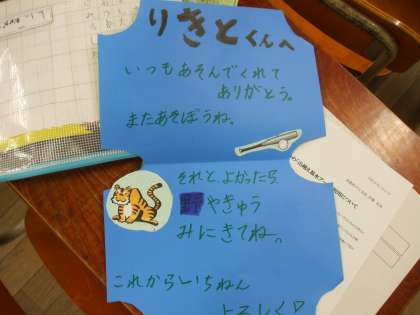 りきとくんへ
いつもあそんでくれて
ありがとう。
またあそぼうね。
それとよかったら
野やきゅう
みにきてね。
これからいちねん
よろしく♡